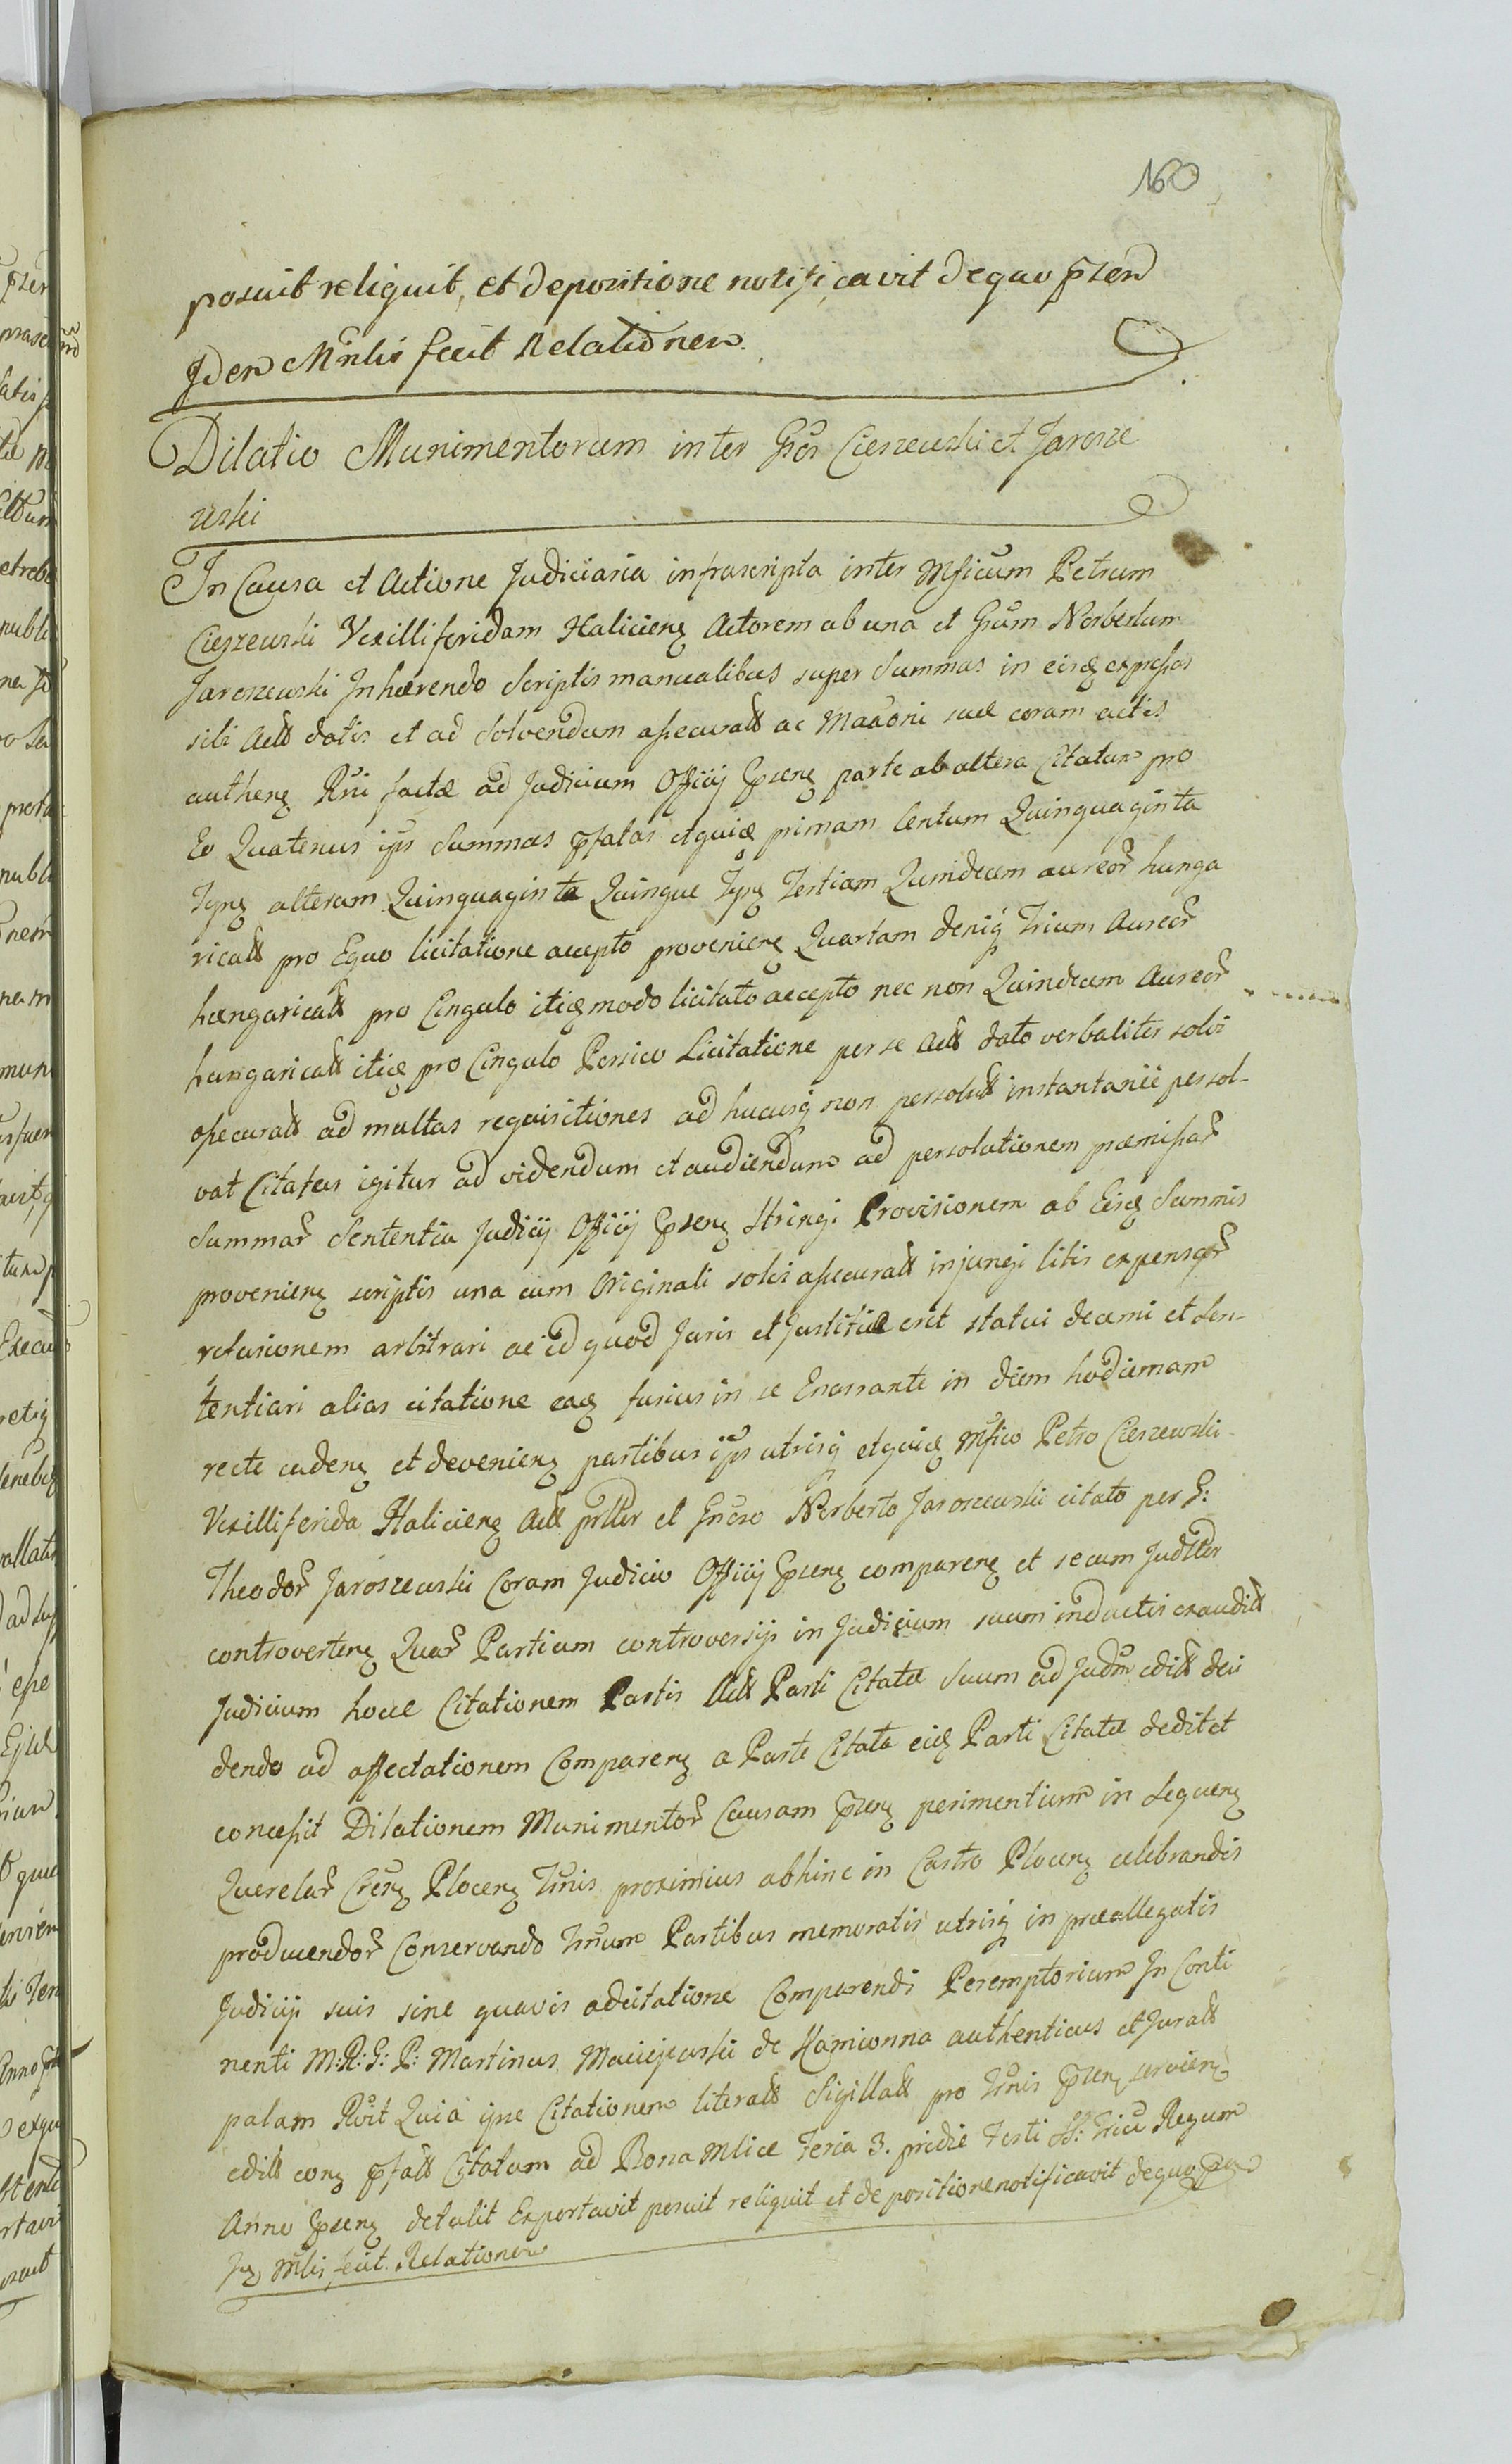 160
posuit reliquit, et depositione notificavit de quo pñsen
Idem Mñlis fecit Relationem.
Dilatio Munimentorum inter Gsos Cieszewski et Jarosze
wski
In Causa et Actione Judiciaria infrascripta inter Mficum Petrum
Cieszewski Vexilliferidam Haliciens Actorem ab una et Gsum Norbertum
Jaroszewski Inhærendo Scriptis manualibus super Summas in eisq expressas
sibi Act datis et ad Solvendum assecurat ac
authens Rñi factæ ad Judicium Officij pñsens parte ab altera Citatum pro
Eo Quatenus ips Summas pfatas etquiq primam Centum Quinquaginta
Tynf alteram Quinquaginta Quinque Tynf Tertiam Quindecem aureor hunga
ricat pro Equo licitatione accepto proveniens Quartam deniq Trium Aureor
hungaricat pro Cingulo itiq modo licitato accepto nec non Quindecem Aureor
hungaricat itiq pro Cingulo Persico Licitatione per se Act dato verbaliter solvi
assecurat ad multas requisitiones ad hucusq non persolut instantanie persol-
vat Citatus igitur ad videndum et audiendum ad persolutionem præmissar
Summar Sententia Judicij Officij pñsens Stringi Provisionem ab Eisq Summis
proveniens scriptis una cum Originali solvi assecurat injungi litis expensar
refusionem arbitrari ac id quod Juris et Justitiæ erit statui decerni et Sen-
tentiari alias citatione eaq fusius in se Enarrante in diem hodiernam
recte cadens et deveniens partibus ips utrisq etquiq Mfico Petro Cieszewski
Vexilliferida Haliciens Act prlter et Gneroso Norberto Jaroszewski citato per G:
Theodor Jaroszewski Coram Judicio Officij pñsens comparens et secum Judlter
controvertens Quar Partium controversijs in Judicium suum inductis exaudit
Judicium hocce Citationem Partis Act Parti Citatæ Suum ad Judm edit deci
dendo ad affectationem Comparens a Parte Citata eiq Parti Citatæ dedit et
concessit Dilationem Munimentor Causam pñsens perimentium in Sequens
Querelar Crens Plocens Tñnis proximius abhinc in Castro Plocens celebrandis
producendor Conservando Tñnum Partibus memoratis utrisq in præallegatis
Judicijs suis sine quavis adcitatione Comparendi Peremptorium In Conti
nenti M:R:G:P: Martinus Maciejewski de Kamionna authenticus et Jurat
palam Rvit Quia ipse Citationem literat Sigillat pro Tñnis pñsens serviens
edit cong pfat Citatum ad Bona Mlice Feria 3. pridie Festi SS: Triu Regum
Anno pñsens detulit Exportavit posuit reliquit et de positione notificavit de quo pñsen
Iq Mlis fecit Relationem